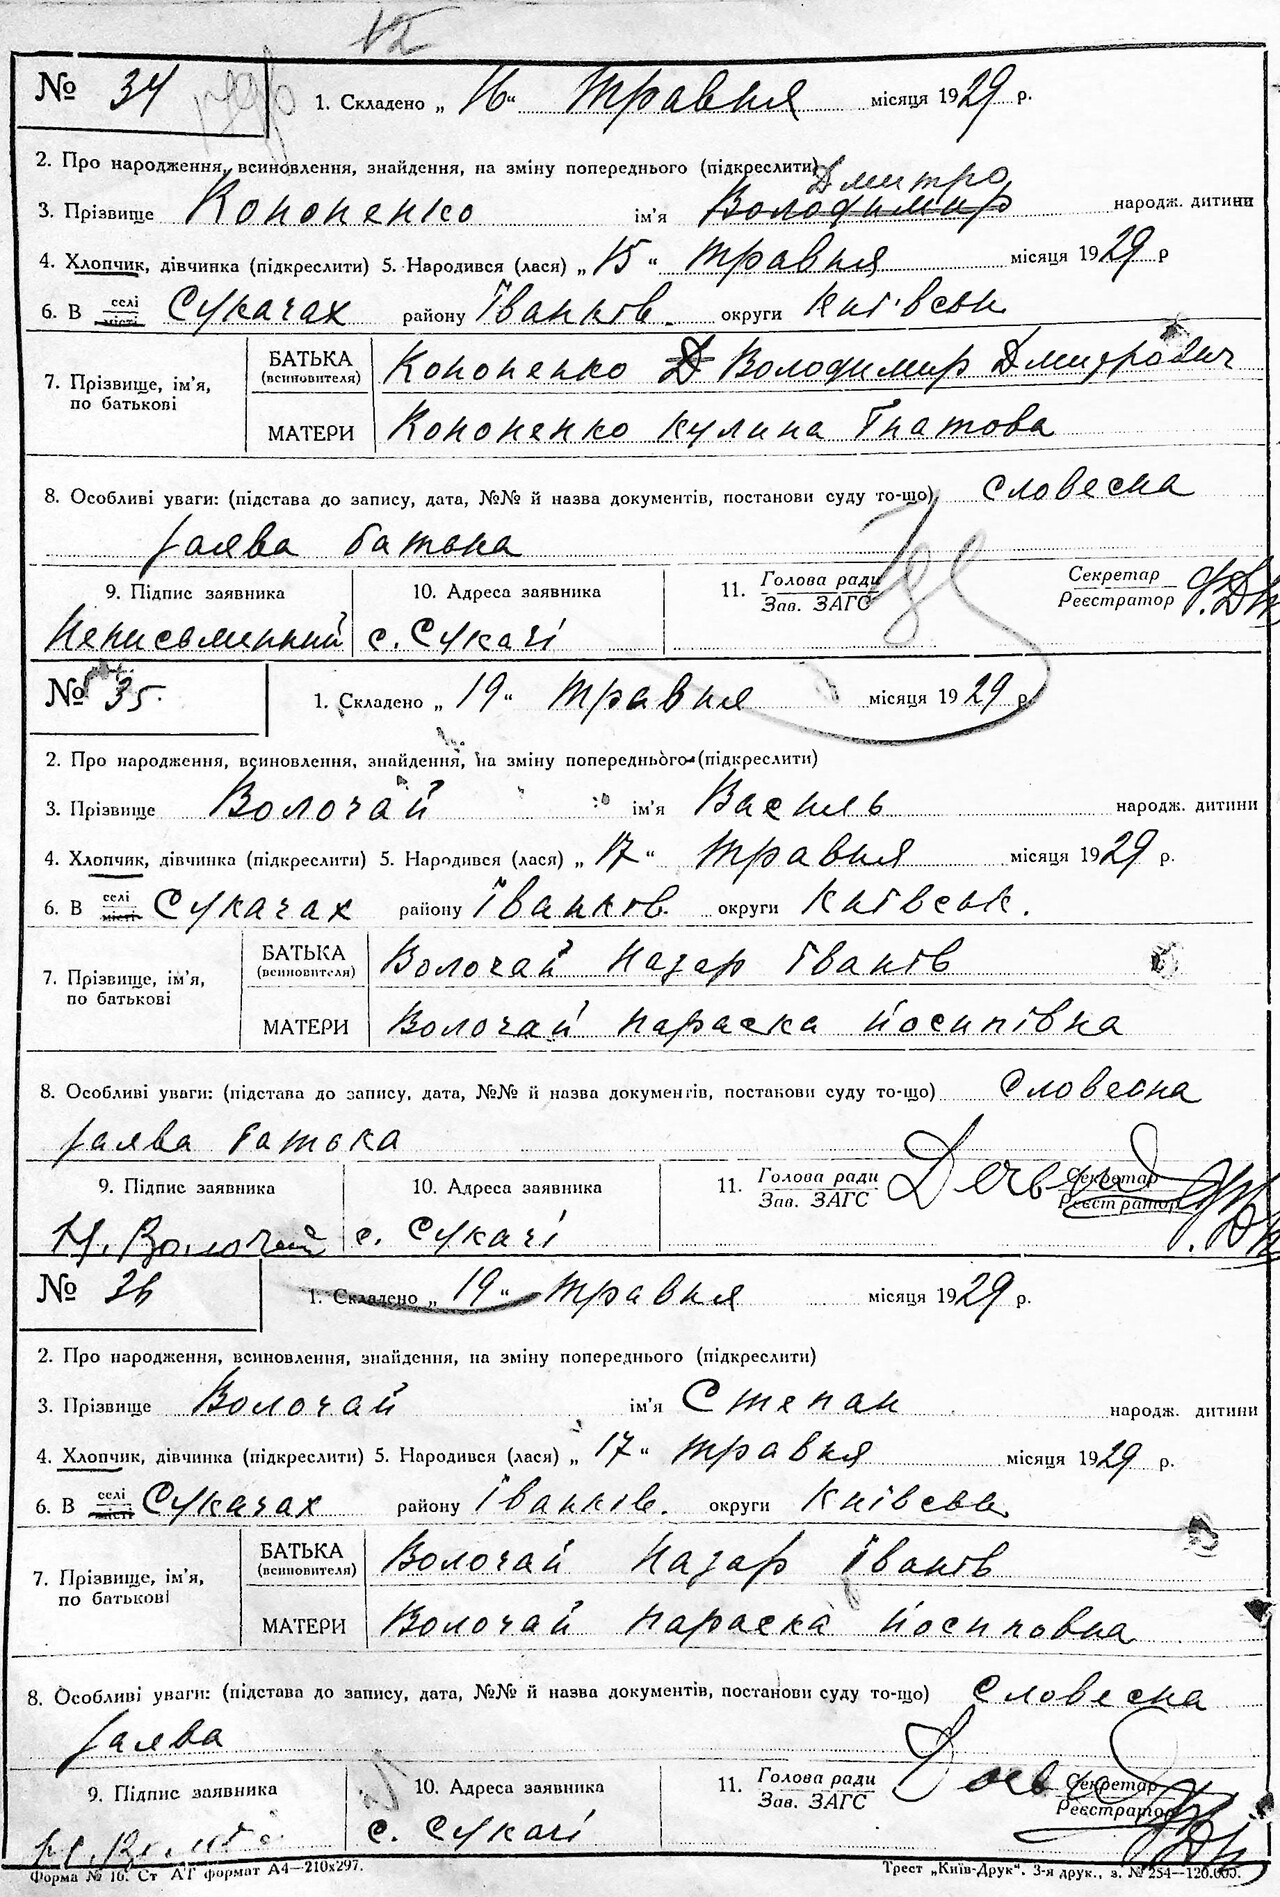 12
№ 34 1. Складено „ 16 “ травня місяця 1929 р.
2. Про народження, всиновлення, знайдення, на зміну попереднього (підкреслити)
Дмитро
3. Прізвище Кононенко ім'я Володимир народж. дитини
4. Хлопчик, дівчинка (підкреслити) 5. Народився (лася) „ 15 “ травня місяця 1929 р
6. В селі місті Сукачах району Іванків. округи Київськ
7. Прізвище, ім'я, по батькові
БАТЬКА (всиновителя) Кононенко Д Володимир Дмитрович
МАТЕРИ Кононенко Кулина Гнатова
8. Особливі уваги: (підстава до запису, дата, №№ й назва документів, постанови суду то-що) словесна
заява батька
9. Підпис заявника 10. Адреса заявника 11. Голова ради Зав. ЗАГС Секретар Реєстратор
Неписьменний с. Сукачі
№ 35. 1. Складено „ 19 “ травня місяця 1929 р.
2. Про народження, всиновлення, знайдення, на зміну попереднього (підкреслити)
3. Прізвище Волочай ім'я Василь народж. дитини
4. Хлопчик, дівчинка (підкреслити) 5. Народився (лася) „ 17 “ травня місяця 1929 р.
6. В селі місті Сукачах району Іванків. округи Київськ.
7. Прізвище, ім'я, по батькові
БАТЬКА (всиновителя) Волочай Назар Іванів
МАТЕРИ Волочай Параска Йосипівна
8. Особливі уваги: (підстава до запису, дата, №№ й назва документів, постанови суду то-що) словесна
заява батька
9. Підпис заявника 10. Адреса заявника 11. Голова ради Зав. ЗАГС Секретар Реєстратор
Н. Волочай с. Сукачі
№ 36 1. Складено „ 19 “ травня місяця 1929 р.
2. Про народження, всиновлення, знайдення, на зміну попереднього (підкреслити)
3. Прізвище Волочай ім'я Степан народж. дитини
4. Хлопчик, дівчинка (підкреслити) 5. Народився (лася) „ 17 “ травня місяця 1929 р.
6. В селі місті Сукачах району Іванків. округи Київськ
7. Прізвище, ім'я, по батькові
БАТЬКА (всиновителя) Волочай Назар Іванів
МАТЕРИ Волочай Параска Йосиповна
8. Особливі уваги: (підстава до запису, дата, №№ й назва документів, постанови суду то-що) словесна
заява
9. Підпис заявника 10. Адреса заявника 11. Голова ради Зав. ЗАГС Секретар Реєстратор
с. Сукачі
Форма № 16. Ст АГ формат А4—210х297. Трест „Київ-Друк“. 3-я друк., з. № 254—120.000.